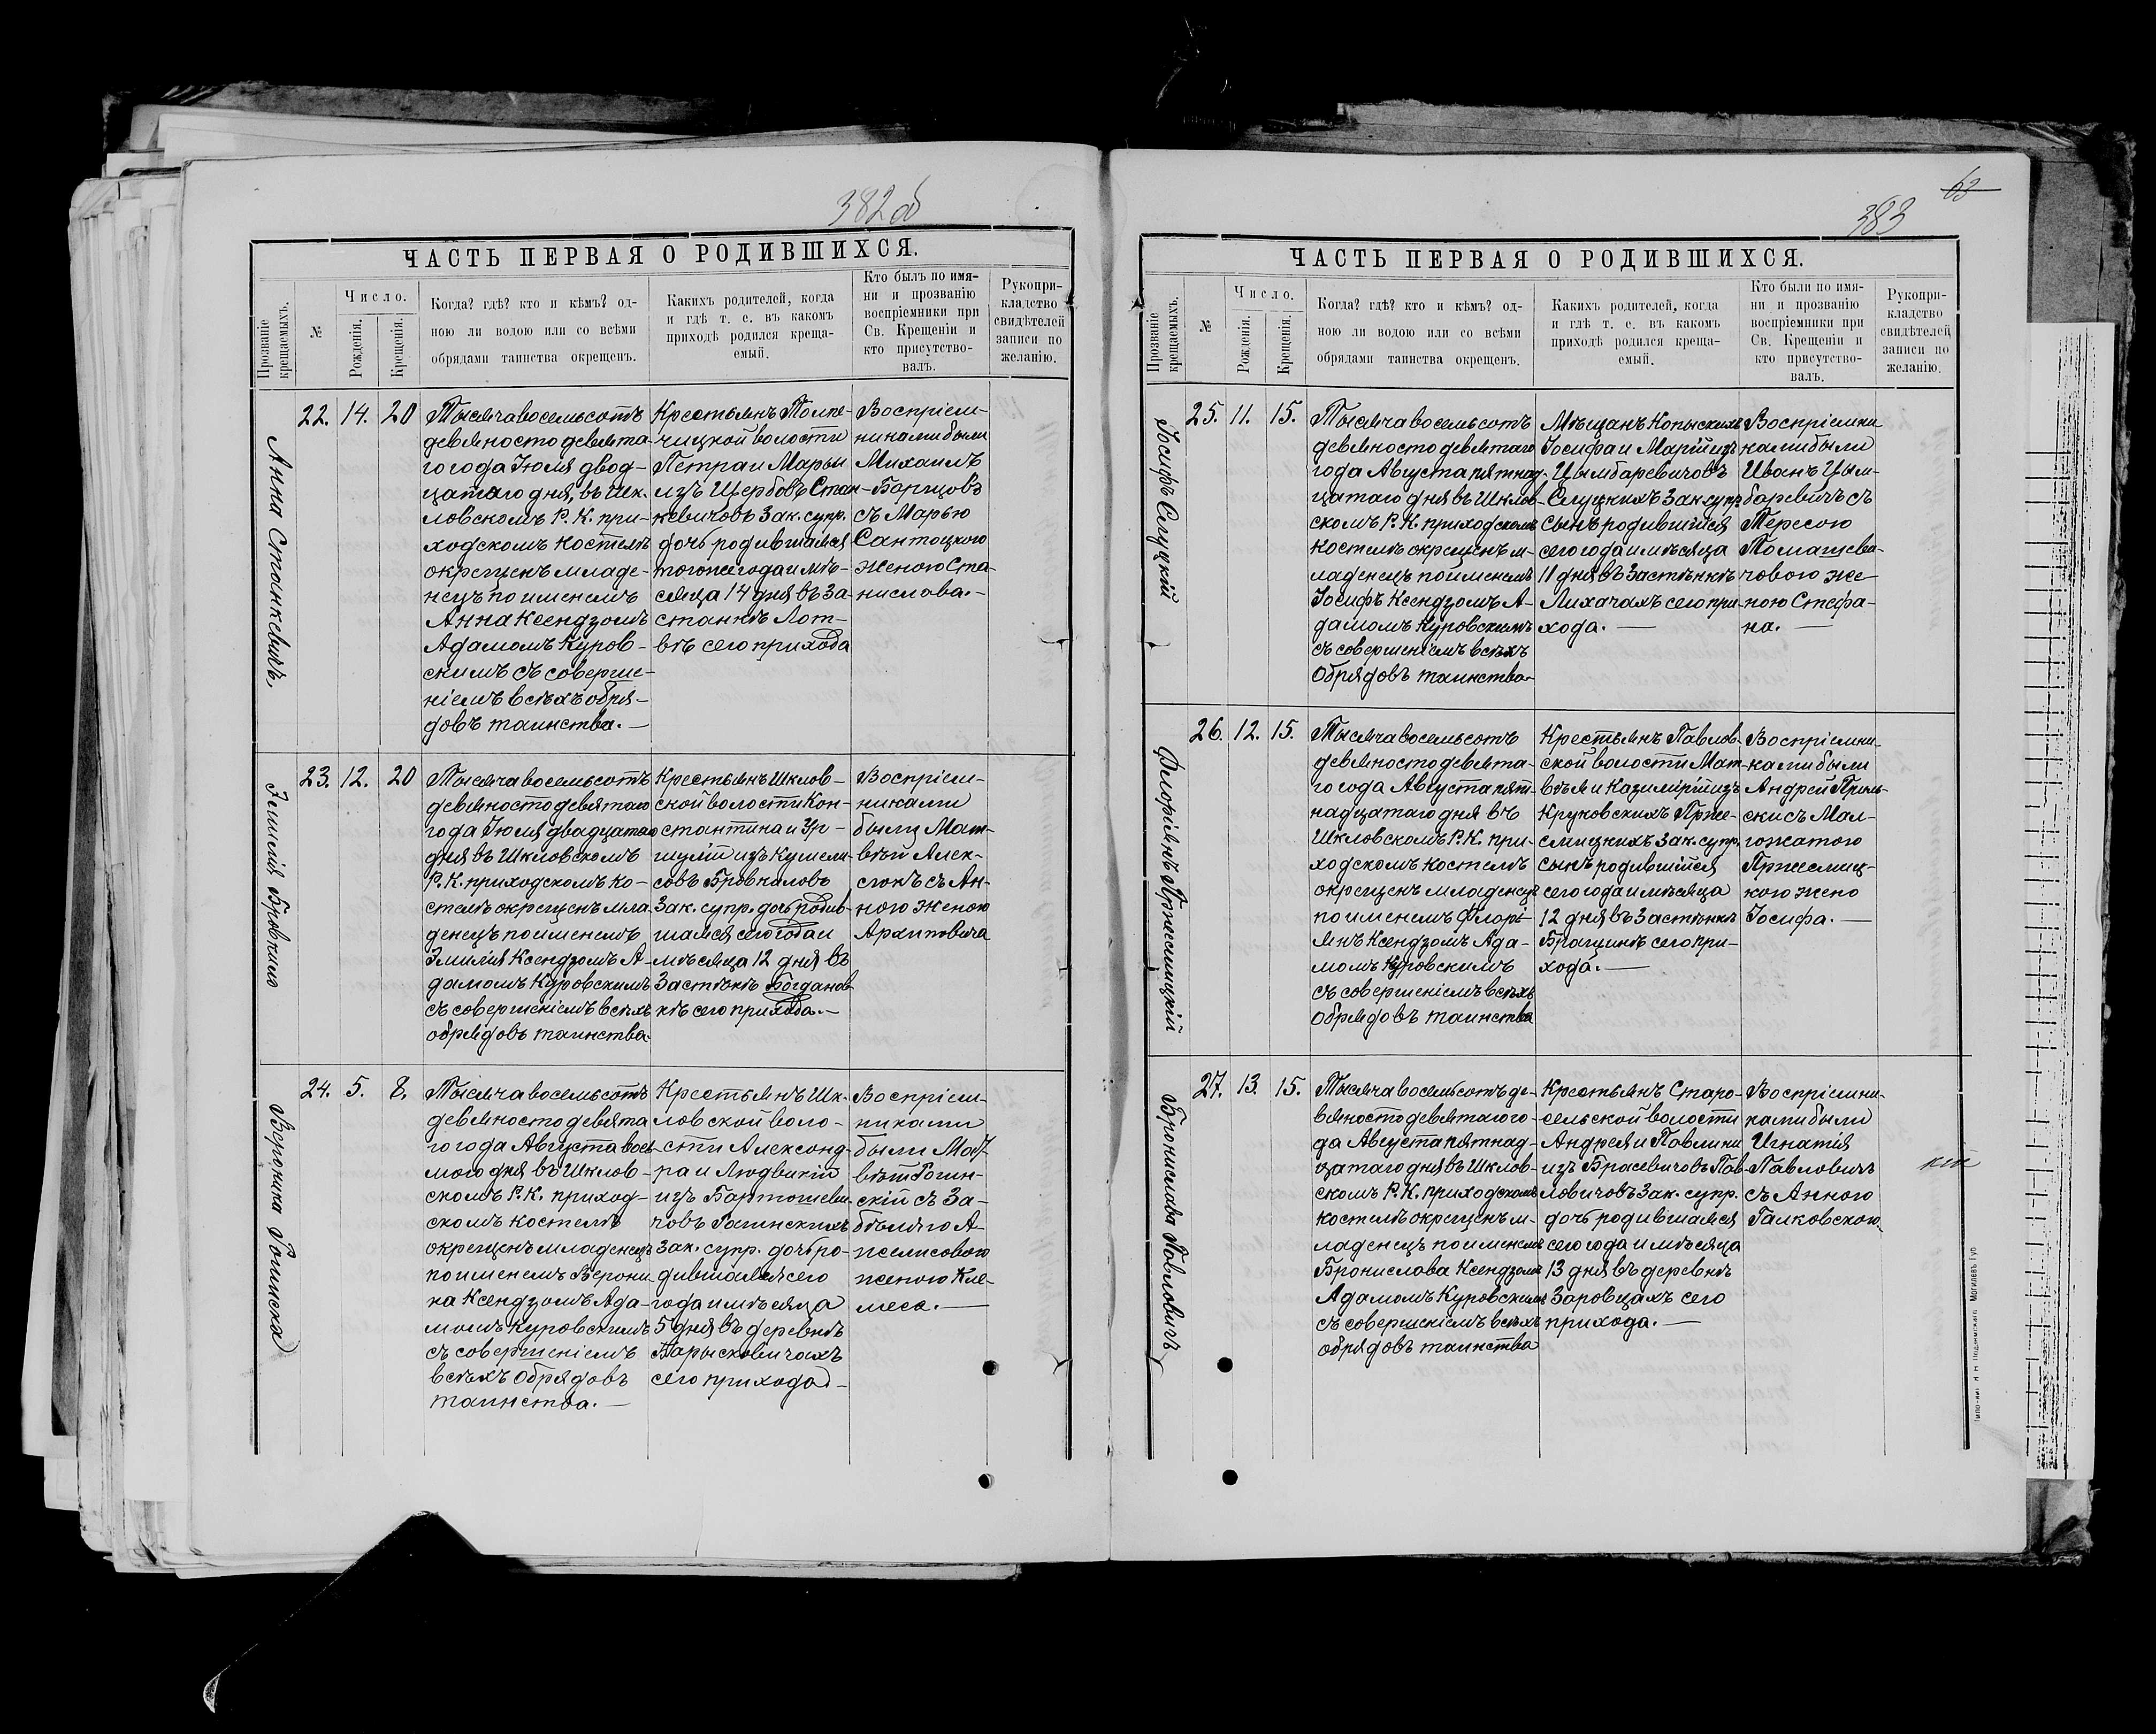 382 об
ЧАСТЬ ПЕРВАЯ О РОДИВШИХСЯ.
Прозваніе
крещаемыхъ.
№
Число.
Рожденія.
Крещенія.
Когда? гдѣ? кто и кѣмъ? од-
ною ли водою или со всѣми
обрядами таинства окрещенъ.
Какихъ родителей, когда
и гдѣ т. е. въ какомъ
приходѣ родился креща-
емый.
Кто былъ по имя-
ни и прозванію
воспріемники при
Св. Крещеніи и
кто присутство-
валъ.
Рукопри-
кладство
свидѣтелей
записи по
желанію.
Анна Станкевичъ.
22. 14. 20
Тысяча восемьсотъ
девяносто девята-
го года Іюля двад-
цатаго дня, въ Шк-
ловскомъ Р. К. при-
ходскомъ костелѣ
окрещенъ младе-
нецъ по именемъ
Анна Ксендзомъ
Адамомъ Куров-
скимъ съ соверше-
ніемъ всѣхъ обря-
довъ таинства. —
Крестьянъ
чицкой волости
Петра и Марьи
изъ Щербовъ Стан-
кевичовъ Зак. супр.
дочь родившаяся
тогожегода и мѣ-
сяца 14 дня въ За-
станкѣ Лот-
вѣ сего прихода
Воспріем-
никами были
Михаилъ
Борщовъ
съ Марью
Сантоцкого
женою Ста-
нислава. —
Эмилія Бровкило
23. 12. 20
Тысяча восемьсотъ
девяносто девятаго
года Іюля двадцатаго
дня въ Шкловскомъ
Р. К. приходскомъ ко-
стелѣ окрещенъ мла-
денецъ по именемъ
Эмилія Ксендзомъ А-
дамомъ Куровскимъ
съ совершеніемъ всѣхъ
обрядовъ таинства
Крестьянъ Шклов-
ской волости Кон-
стантина и Ур-
шуліи изъ Кушели-
совъ Бровкиловъ
Зак. супр. дочь родив-
шаяся сего года и
мѣсяца 12 дня въ
Застѣнкѣ Богданов-
кѣ сего прихода. —
Воспріем-
никами
были Мат-
вѣй Алек-
съ Ан-
ною женою
Архиповича
Вероника Рогинска
24. 5. 8.
Тысяча восемьсотъ
девяносто девята
го года Августа вось-
мого дня въ Шклов-
скомъ Р. К. приход-
скомъ костелѣ
окрещенъ младенецъ
по именемъ Верони-
ка Ксендзомъ Ада-
момъ Куровскимъ
съ совершеніемъ
всѣхъ Обрядовъ
таинства. —
Крестьянъ Шк-
ловской воло-
сти Александ-
ра и Людвикіи
изъ Бартошеви-
човъ Рагинскихъ
Зак. супр. дочь ро-
дившаяся сего
года и мѣсяца
5 дня въ деревнѣ
Барысковичахъ
сего прихода —
Воспріем-
никами
были Мат-
вѣй Рогин-
скій съ За-
бѣлло А-
женою Кле-
меса. —
63
383
ЧАСТЬ ПЕРВАЯ О РОДИВШИХСЯ.
Прозваніе
крещаемыхъ.
№
Число.
Рожденія.
Крещенія.
Когда? гдѣ? кто и кѣмъ? од-
ною ли водою или со всѣми
обрядами таинства окрещенъ.
Какихъ родителей, когда
и гдѣ т. е. въ какомъ
приходѣ родился креща-
емый.
Кто были по имя-
ни и прозванію
воспріемники при
Св. Крещеніи и
кто присутство-
валъ.
Рукопри-
кладство
свидѣтелей
записи по
желанію.
Іосифъ Слуцкій
25. 11. 15.
Тысяча восемьсотъ
девяносто девятаго
года Августа пятнад-
цатаго дня въ Шклов-
скомъ Р. К. приходскомъ
костелѣ окрещенъ м-
ладенецъ по именемъ
Іосифъ Ксендзомъ А-
дамомъ Куровскимъ
съ совершеніемъ всѣхъ
Обрядовъ таинства
Мѣщанъ Копыскихъ
Іосифа и Маріи изъ
Цымбаревичовъ
Слуцкихъ Зак. супр.
сынъ родившійся
сего года и мѣсяца
11 дня въ Застѣнкѣ
Лихачахъ сего при-
хода. —
Воспріемни-
ками были
Иванъ Цым-
баревичъ съ
Тересою
Томашеви-
човою же-
ною Стефа-
на. —
Флоріянъ Пржесмицкій
26. 12. 15.
Тысяча восемьсотъ
девяносто девята-
го года Августа пят-
надцатаго дня въ
Шкловскомъ Р. К. при-
ходскомъ костелѣ
окрещенъ младенецъ
по именемъ Флорі-
янъ Ксендзомъ Ада-
момъ Куровскимъ
съ совершеніемъ всѣхъ
Обрядовъ таинства
Крестьянъ Павлов-
ской волости Мат-
вѣя и Казиміріи изъ
Круковскихъ Прже-
смицкихъ Зак. супр.
сынъ родившійся
сего года и мѣсяца
12 дня въ Застѣнкѣ
Бращинѣ сего при-
хода. —
Воспріемни-
ками были
Андрей
съ Мал-
гожатою
Пржесмиц-
кого жено
Іосифа. —
Бронислава Павловичъ
27. 13. 15.
Тысяча восемьсотъ де-
вяносто девятаго го-
да Августа пятнад-
цатаго дня въ Шклов-
скомъ Р. К. приходскомъ
костелѣ окрещенъ м-
ладенецъ по именемъ
Бронислава Ксендзомъ
Адамомъ Куровскимъ
съ совершеніемъ всѣхъ
обрядовъ таинства
Крестьянъ Старо-
сельской волости
Андрея и Павлины
изъ Брасевичовъ Пав-
ловичовъ Зак. супр.
дочь родившаяся
сего года и мѣсяца
13 дня въ деревнѣ
Заровцахъ сего
прихода. —
Воспріемни-
ками были
Игнатія
Павловичъ
съ Анною
Галковскою